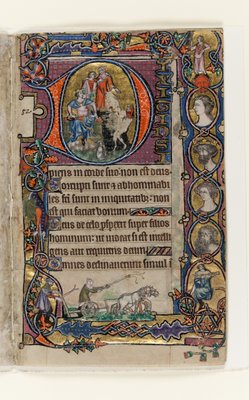 52.
D
piens in corde suo: non est deus
Corrupti sunt ⁊ abhominabi
les fci sunt in iniquitatib: non
est qui faciat bonum
Deus de celo pspexit super filios
hominum: ut videat si est intelli
gens aut requirens deum
Omnes declinaverunt simul i